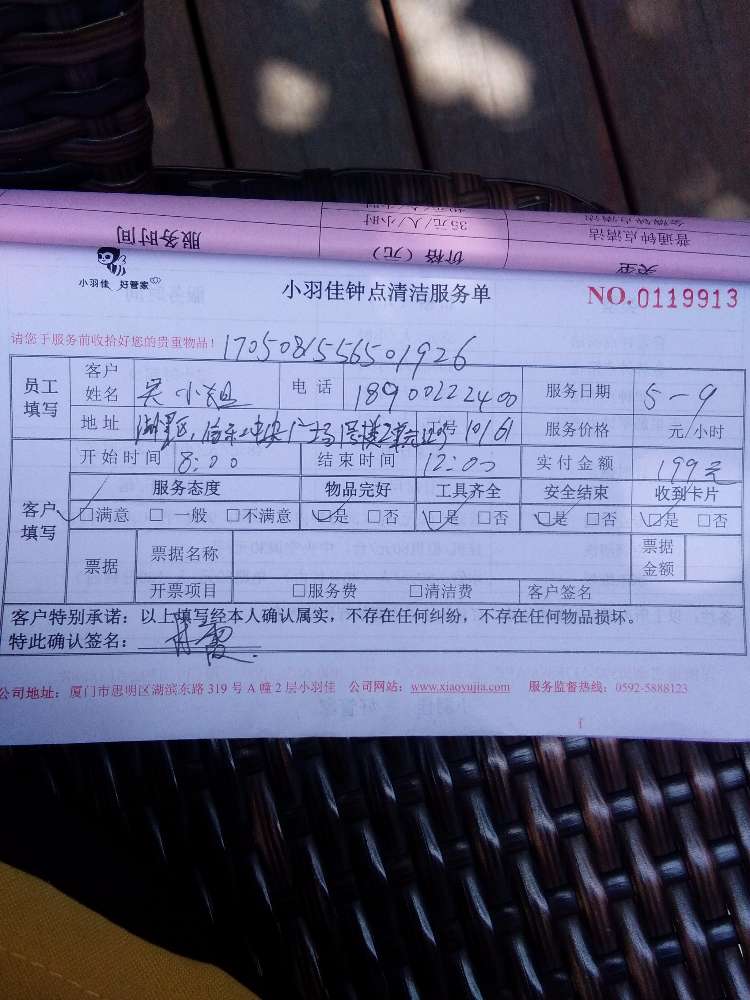 服务时间
价格（元）
35元/人/小时
普通钟点清洁
小羽佳 好管家
小羽佳钟点清洁服务单
NO.0119913
请您于服务前收拾好您的贵重物品！ 1705081556501926
员工填写 客户姓名 吴小姐 电话 18900222400 服务日期 5-9
地址 湖里区, 1061 服务价格 元/小时
客户填写 开始时间 8:00 结束时间 12:00 实付金额 199元
服务态度 物品完好 工具齐全 安全结束 收到卡片
☑满意 □一般 □不满意 ☑是 □否 ☑是 □否 ☑是 □否 ☑是 □否
票据 票据名称 票据金额
开票项目 □服务费 □清洁费 客户签名
客户特别承诺：以上填写经本人确认属实，不存在任何纠纷，不存在任何物品损坏。
特此确认签名：
公司地址：厦门市思明区湖滨东路 319 号 A 幢 2 层小羽佳 公司网站：www.xiaoyujia.com 服务监督热线：0592-5888123